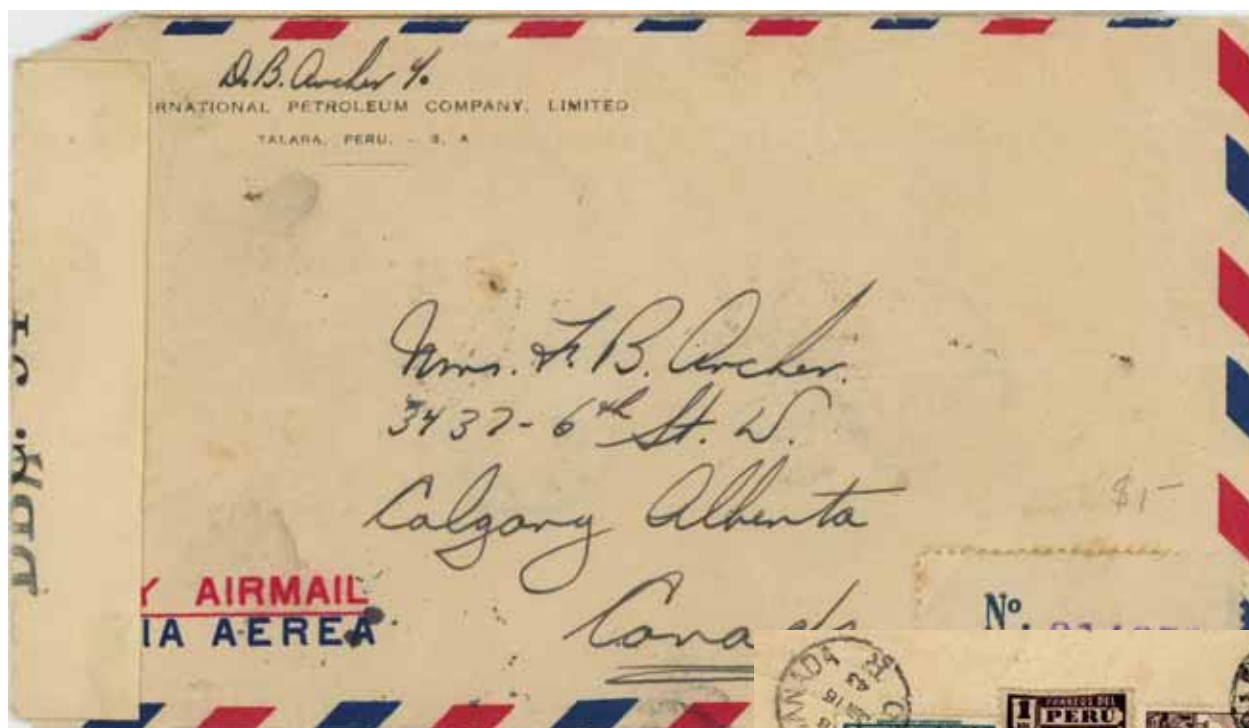 D. B. Archer %
ERNATIONAL PETROLEUM COMPANY, LIMITED
TALARA, PERU. - S. A
Mrs. F. B. Archer.
3437 - 6th St. W.
Calgary Alberta
Canada
$1-
Y AIRMAIL
IA AEREA
Nº
CANADA
43
CORREOS DEL
PERÚ
1